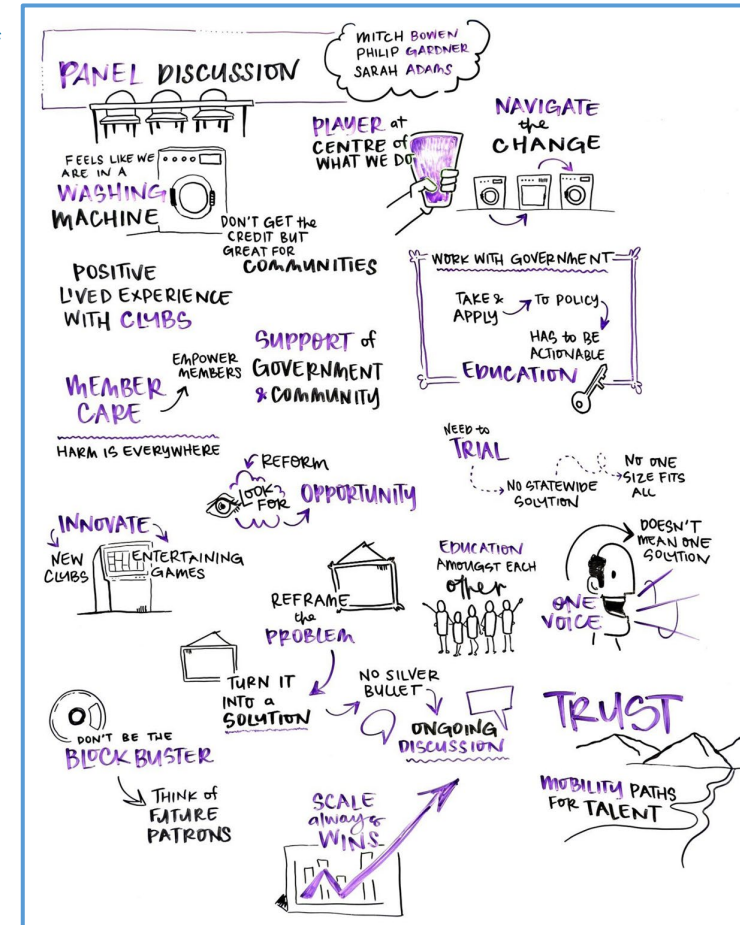 PANEL DISCUSSION
MITCH BOWEN
PHILIP GARDNER
SARAH ADAMS
FEELS LIKE WE
ARE IN A
WASHING
MACHINE
PLAYER at
CENTRE of
WHAT WE DO
NAVIGATE
the
CHANGE
DON'T GET the
CREDIT BUT
GREAT FOR
COMMUNITIES
POSITIVE
LIVED EXPERIENCE
WITH CLUBS
WORK WITH GOVERNMENT
TAKE &
APPLY
TO POLICY
HAS to BE
ACTIONABLE
EDUCATION
MEMBER
CARE
EMPOWER
MEMBERS
SUPPORT of
GOVERNMENT
& COMMUNITY
HARM IS EVERYWHERE
REFORM
LOOK
FOR
OPPORTUNITY
NEED to
TRIAL
NO STATEWIDE
SOLUTION
NO ONE
SIZE FITS
ALL
INNOVATE
NEW
CLUBS
ENTERTAINING
GAMES
REFRAME
the
PROBLEM
EDUCATION
AMONGST EACH
other
DOESN'T
MEAN ONE
SOLUTION
ONE
VOICE
TURN IT
INTO a
SOLUTION
NO SILVER
BULLET
ONGOING
DISCUSSION
DON'T BE THE
BLOCKBUSTER
THINK of
FUTURE
PATRONS
SCALE
always
WINS
TRUST
MOBILITY PATHS
FOR TALENT